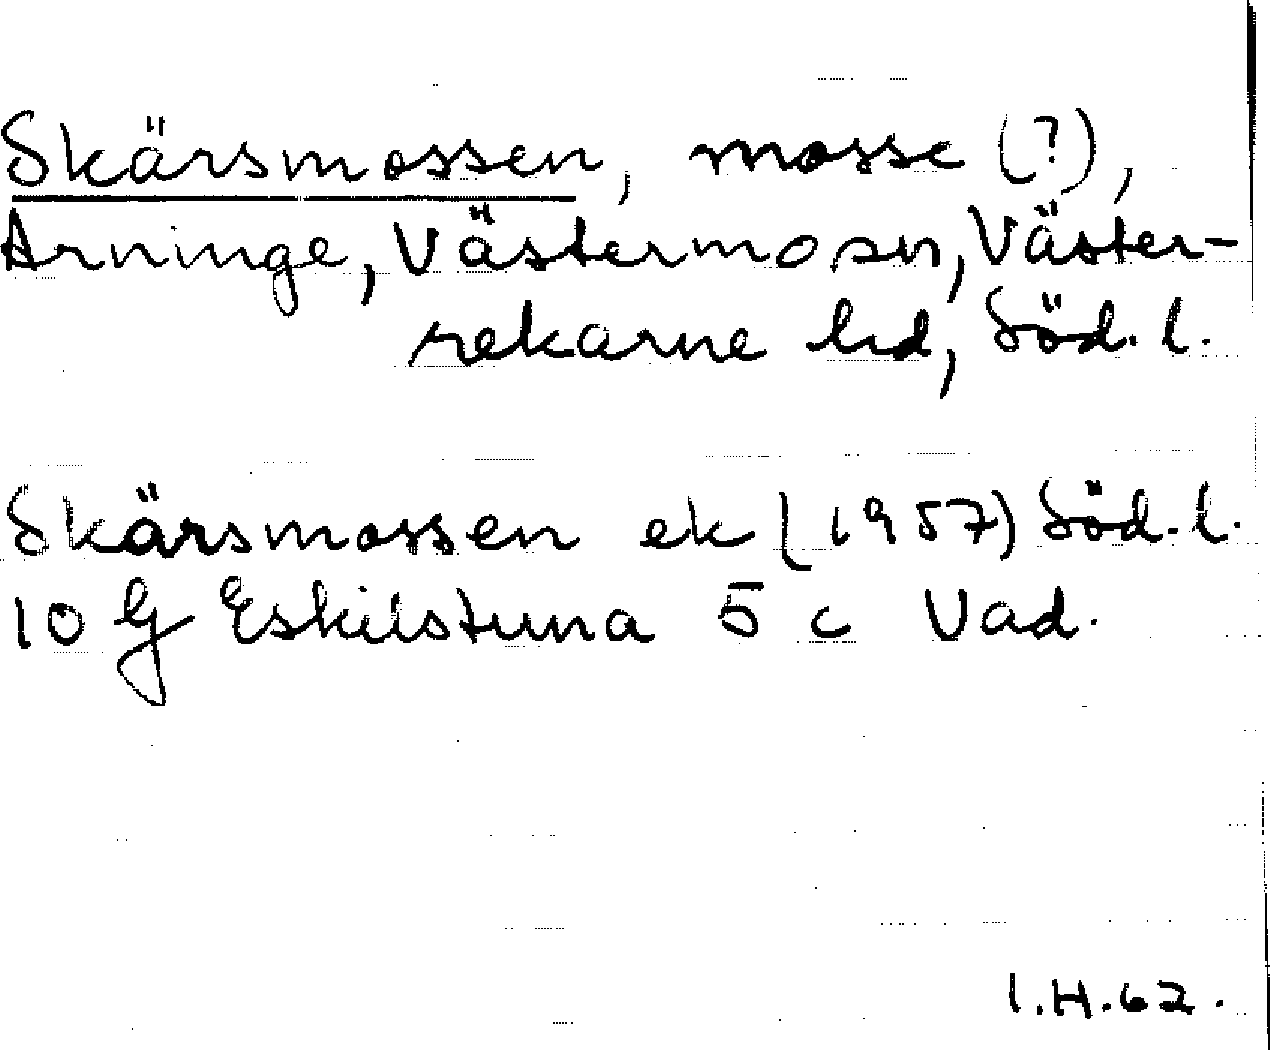 Skärsmossen, mosse (?),
Arninge, Västermo sn, Väster-
rekarne hd, Söd. l.
Skärsmossen ek (1957) Söd. l.
10 G Eskilstuna 5 c Vad.
I.H. 62.